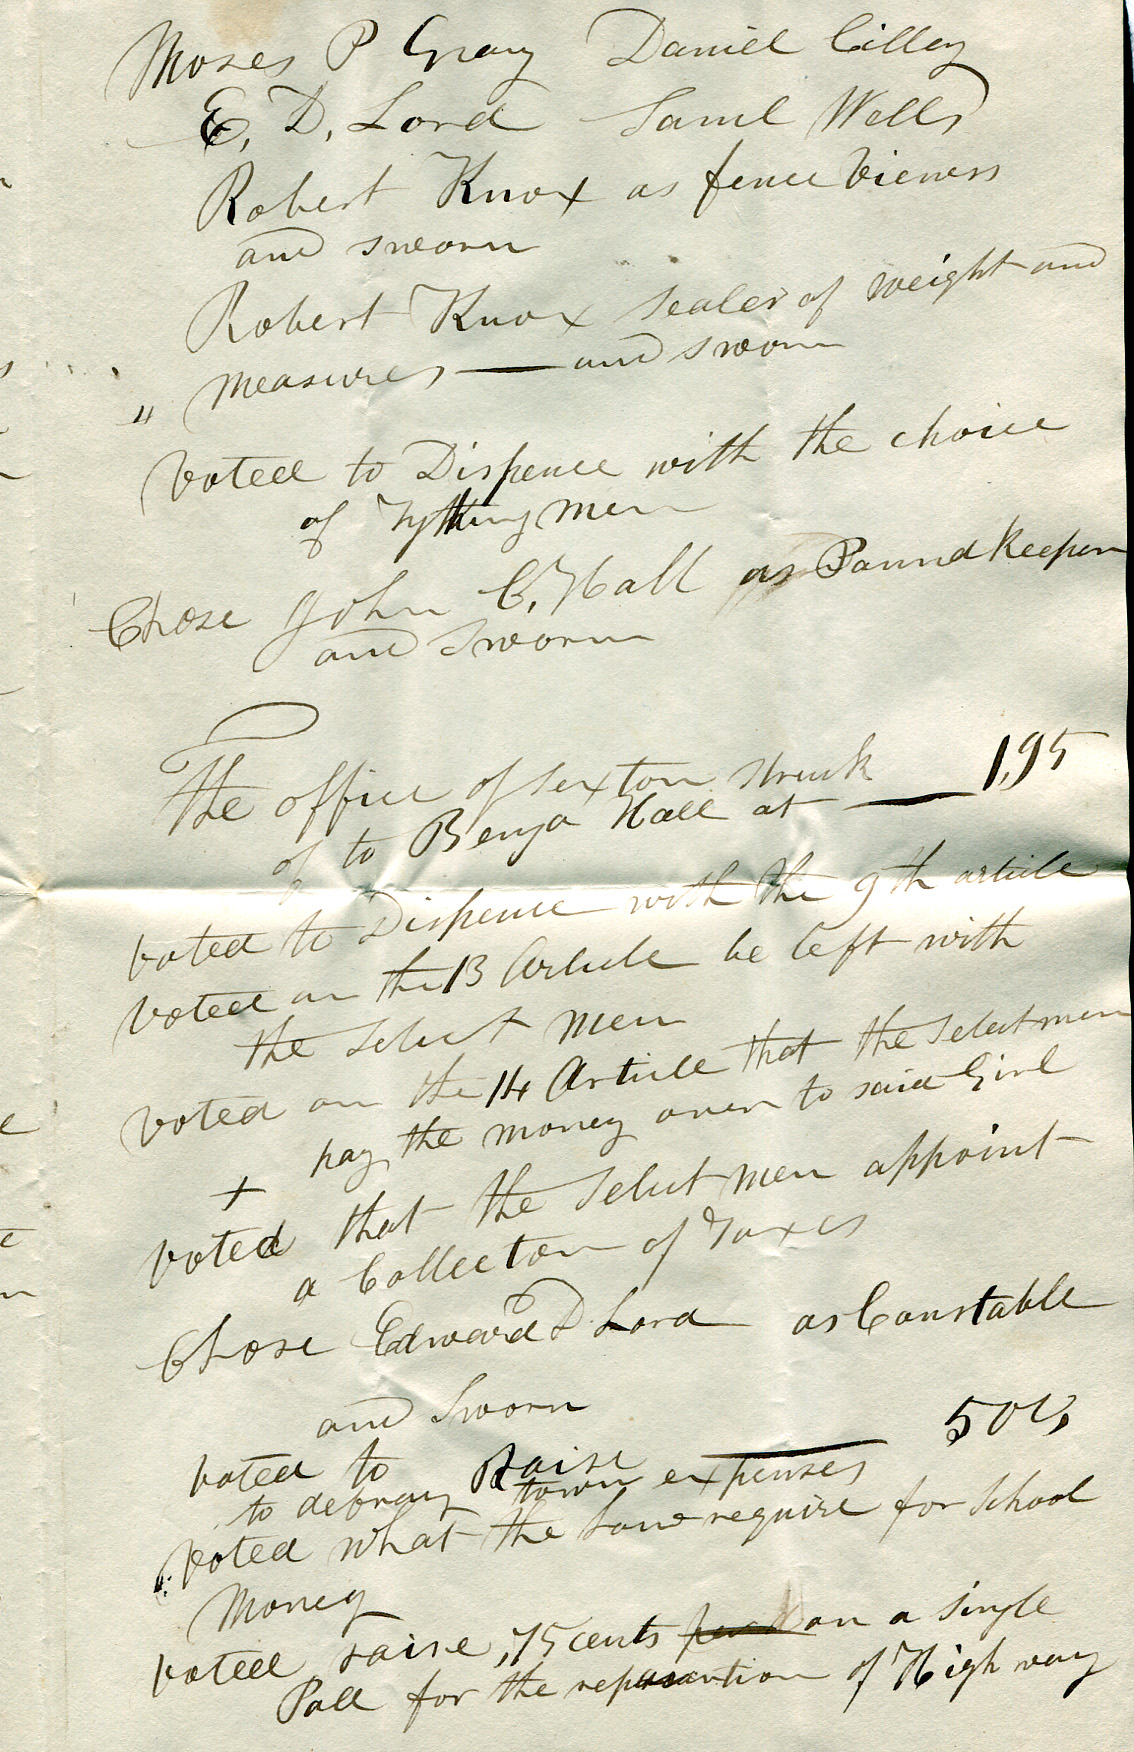 Moses P Gray Daniel Cilley
E. D. Lord Saml Wells
Robert Knox as fence viewers
and sworn
Robert Knox sealer of weight and
" measures — and sworn
voted to Dispence with the choice
of Tythingmen
Chose John C. Hall as Poundkeeper
and Sworn
The office of sexton struck
of to Benja Hall at — 1,95
voted to Dispence with the 9th article
voted on the 13 Article be left with
the select men
voted on the 14 Article that the Selectmen
pay the money over to said Girl
+
voted that the Select men appoint
a Collector of Taxes
Chose Edward D Lord as Constable
and Sworn
voted to Raise — 500,
to defray town expenses
voted what the Law require for School
Money
voted raise ,75 cents on a single
Poll for the reparation of High way